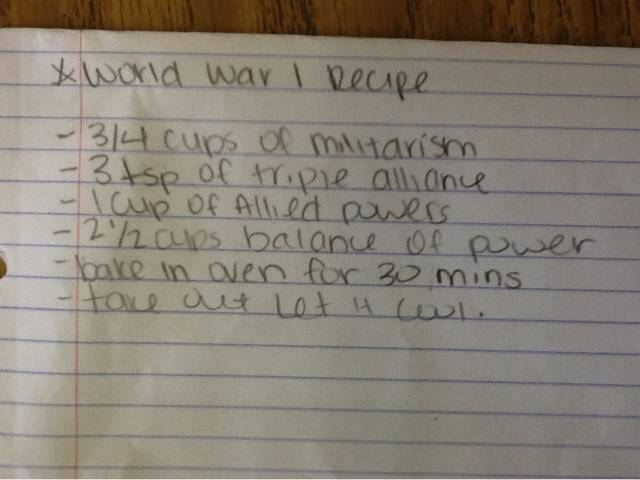 *World War 1 Recipe
- 3/4 cups of militarism
- 3 tsp of triple alliance
- 1 cup of Allied powers
- 2 1/2 cups balance of power
- bake in oven for 30 mins
- take out let it cool.